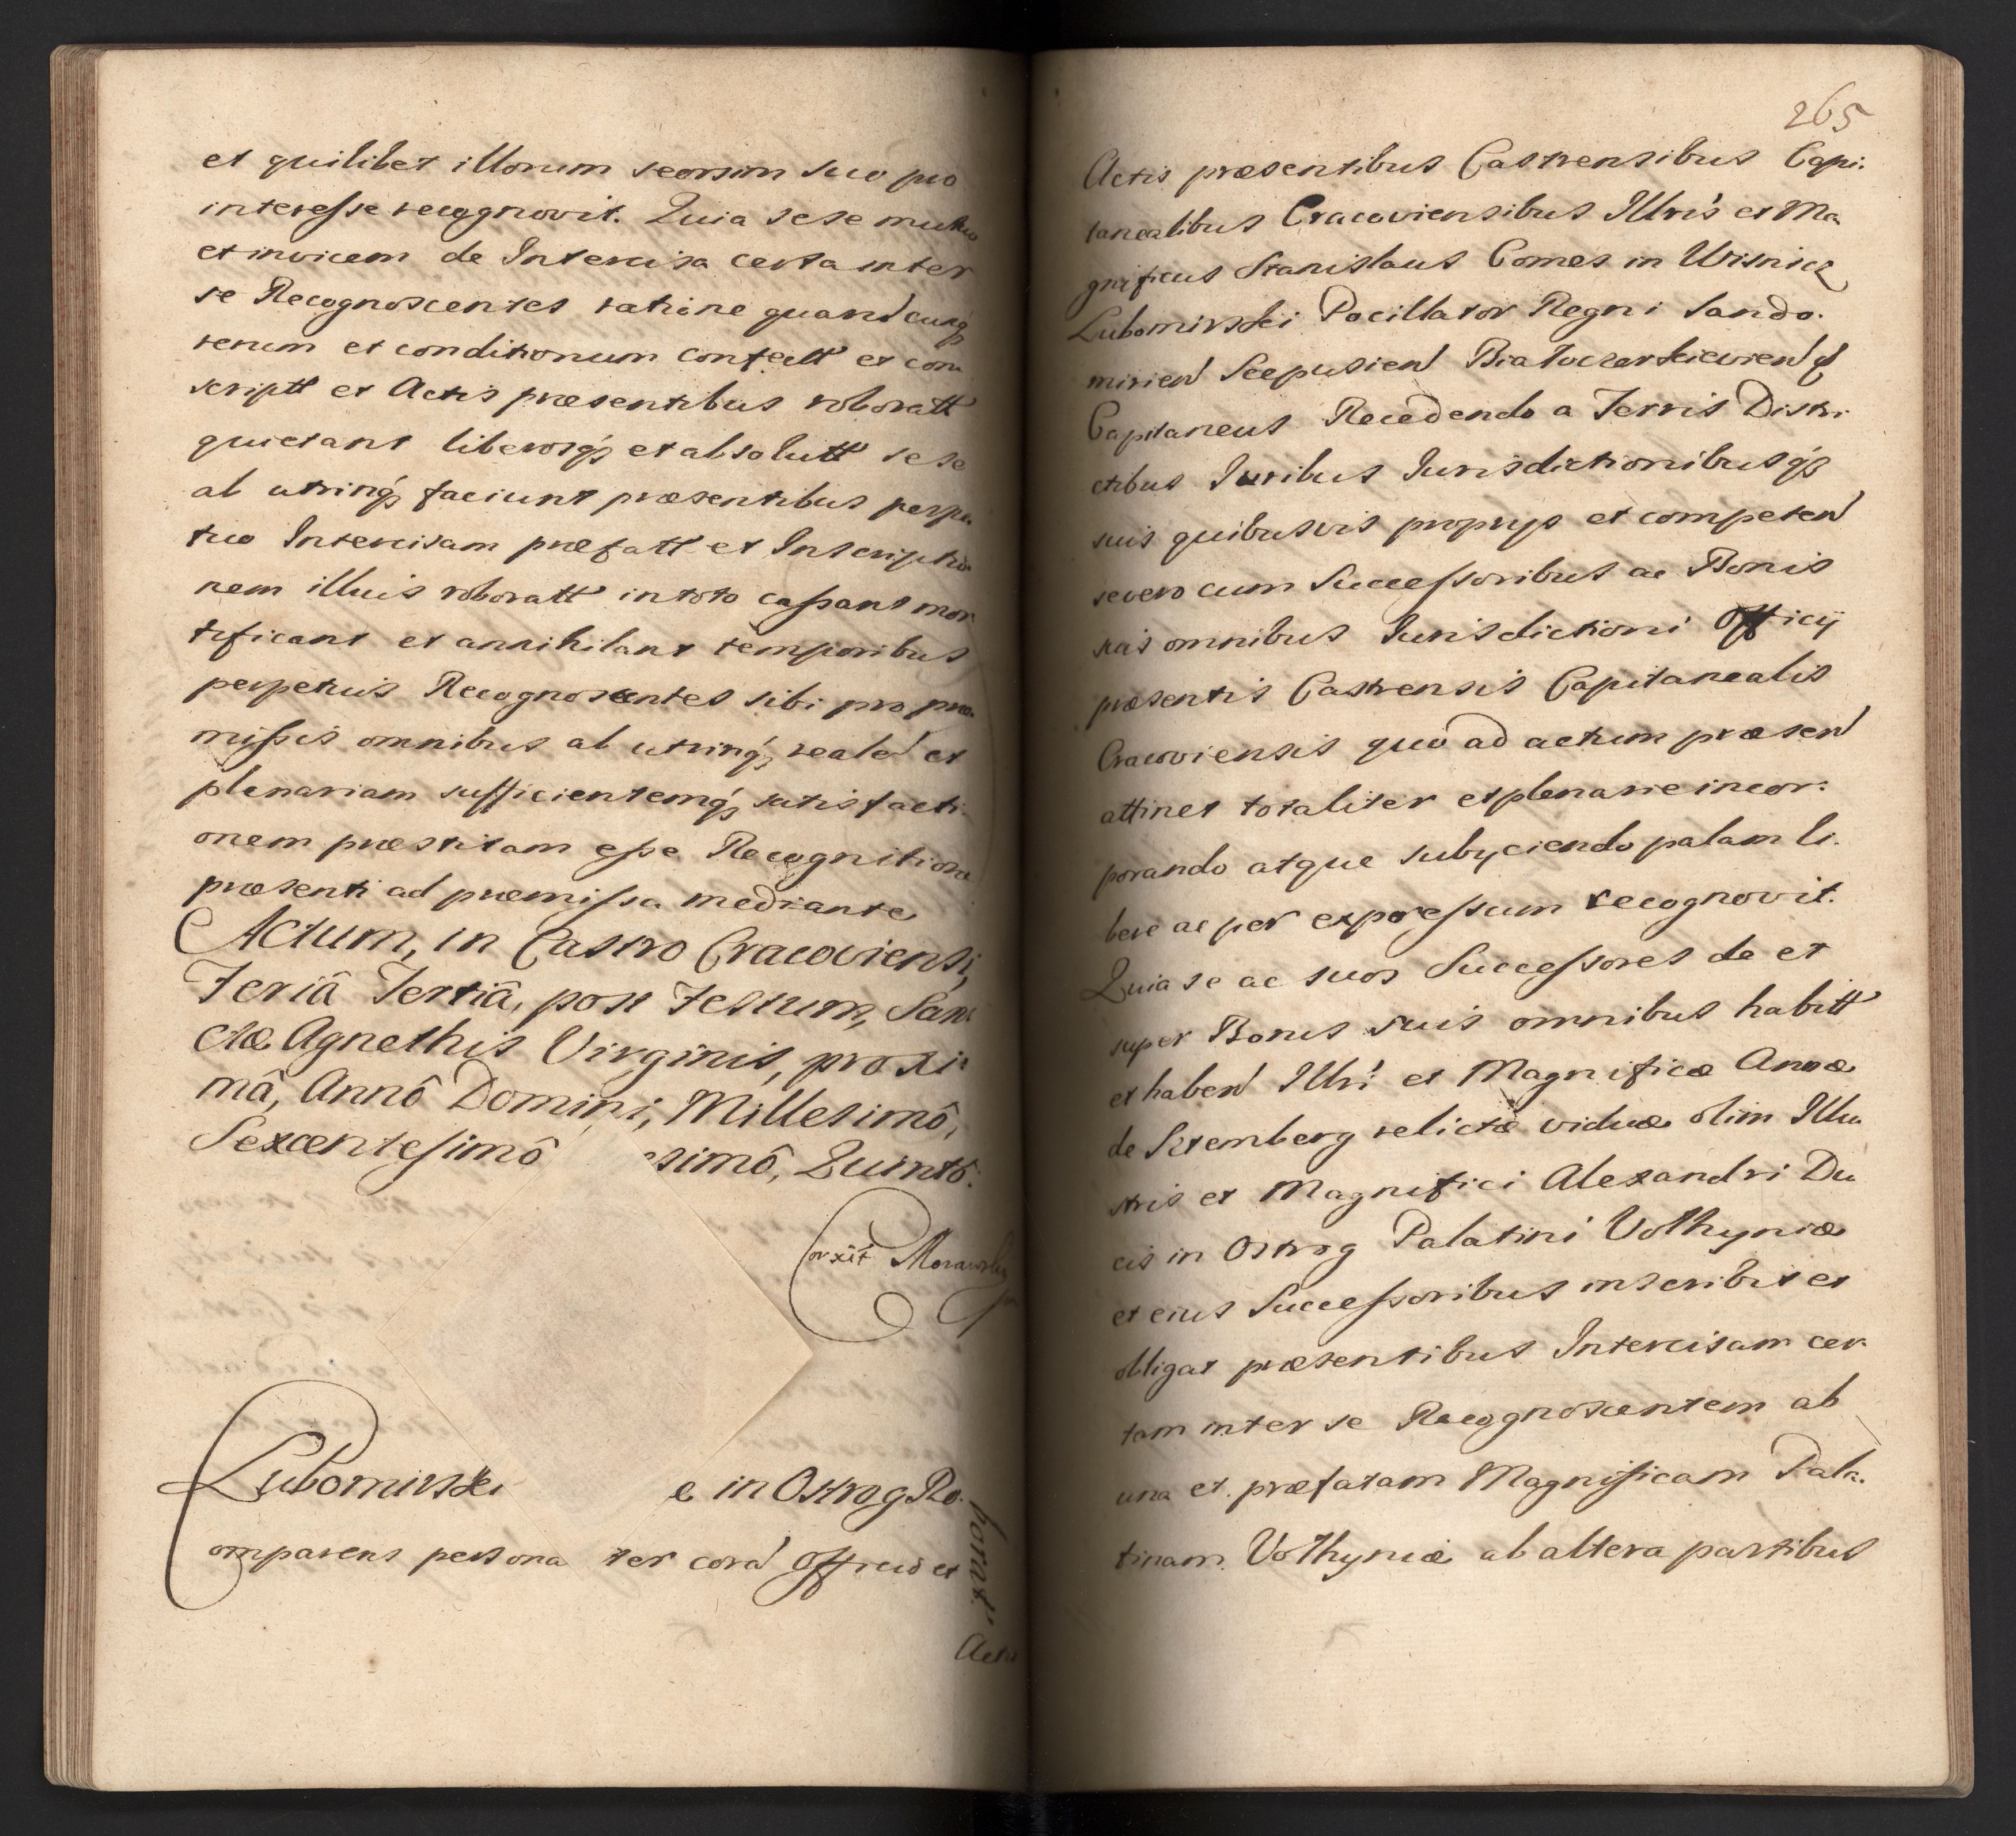 et quilibet illorum seorsim suo pro
interesse recognovit. Quia sese mutuo
et invicem de Intercisa certa inter
se Recognoscentes ratione quarudcunq3
rerum et conditionum confectt et con
scriptt et Actis præsentibus roboratt
quietant liberosq3 et absolutt sese
ab utrinq3 faciunt præsentibus perpe
tuo Intercisam præfatt et Inscriptio
nem illius roboratt in toto cassant mor
tificant et annihilant temporibus
perpetuis Recognoscentes sibi pro præ
missis omnibus ab utrinq3 realed et
plenariam sufficientemq3 satisfacti
onem præstitam esse Recognitione
præsenti ad præmissa mediante
Actum, in Castro Cracoviensi,
Feriâ Tertiâ, post Festum, San
ctæ Agnethis Virginis, proxi
mâ, Annô Domini, Millesimô,
Sexcentesimô esimô, Quintô.
Corxit Morawsky
Lubomirski e in Ostrog Ro
borat.
Comparens persona ter corâ Officio et
Actis
265
Actis præsentibus Castrensibus Capi:
tanealibus Cracoviensibus Illris et Ma
gnificus Stanislaus Comes in Wisnicz
Lubomirski Pocillator Regni Sando.
mirien Scepusien Bialocerkievien
Capitaneus Recedendo a Terris Distri
ctibus Iuribus Iurisdictionibusq3
suis quibusvis proprys et competen
se vero cum Successoribus ac Bonis
suis omnibus Iurisdictioni Officij
præsentis Castrensis Capitanealis
Cracoviensis quo ad actum præsen
attinet totaliter et plenarie incor:
porando atque subyciendo palam li.
bere ac per expressum recognovit.
Quia se ac suos Successores de et
super Bonis suis omnibus habitt
et haben Illri et Magnificæ Annæ
de Sztemberg relictæ viduæ olim Illu
stris et Magnifici Alexandri Du
cis in Ostrog Palatini Volhyniæ
et eius Successoribus inscribit et
obligat præsentibus Intercisam cer
tam inter se Recognoscentem ab
una et præfatam Magnificam Pala.
tinam Volhyniæ ab altera partibus